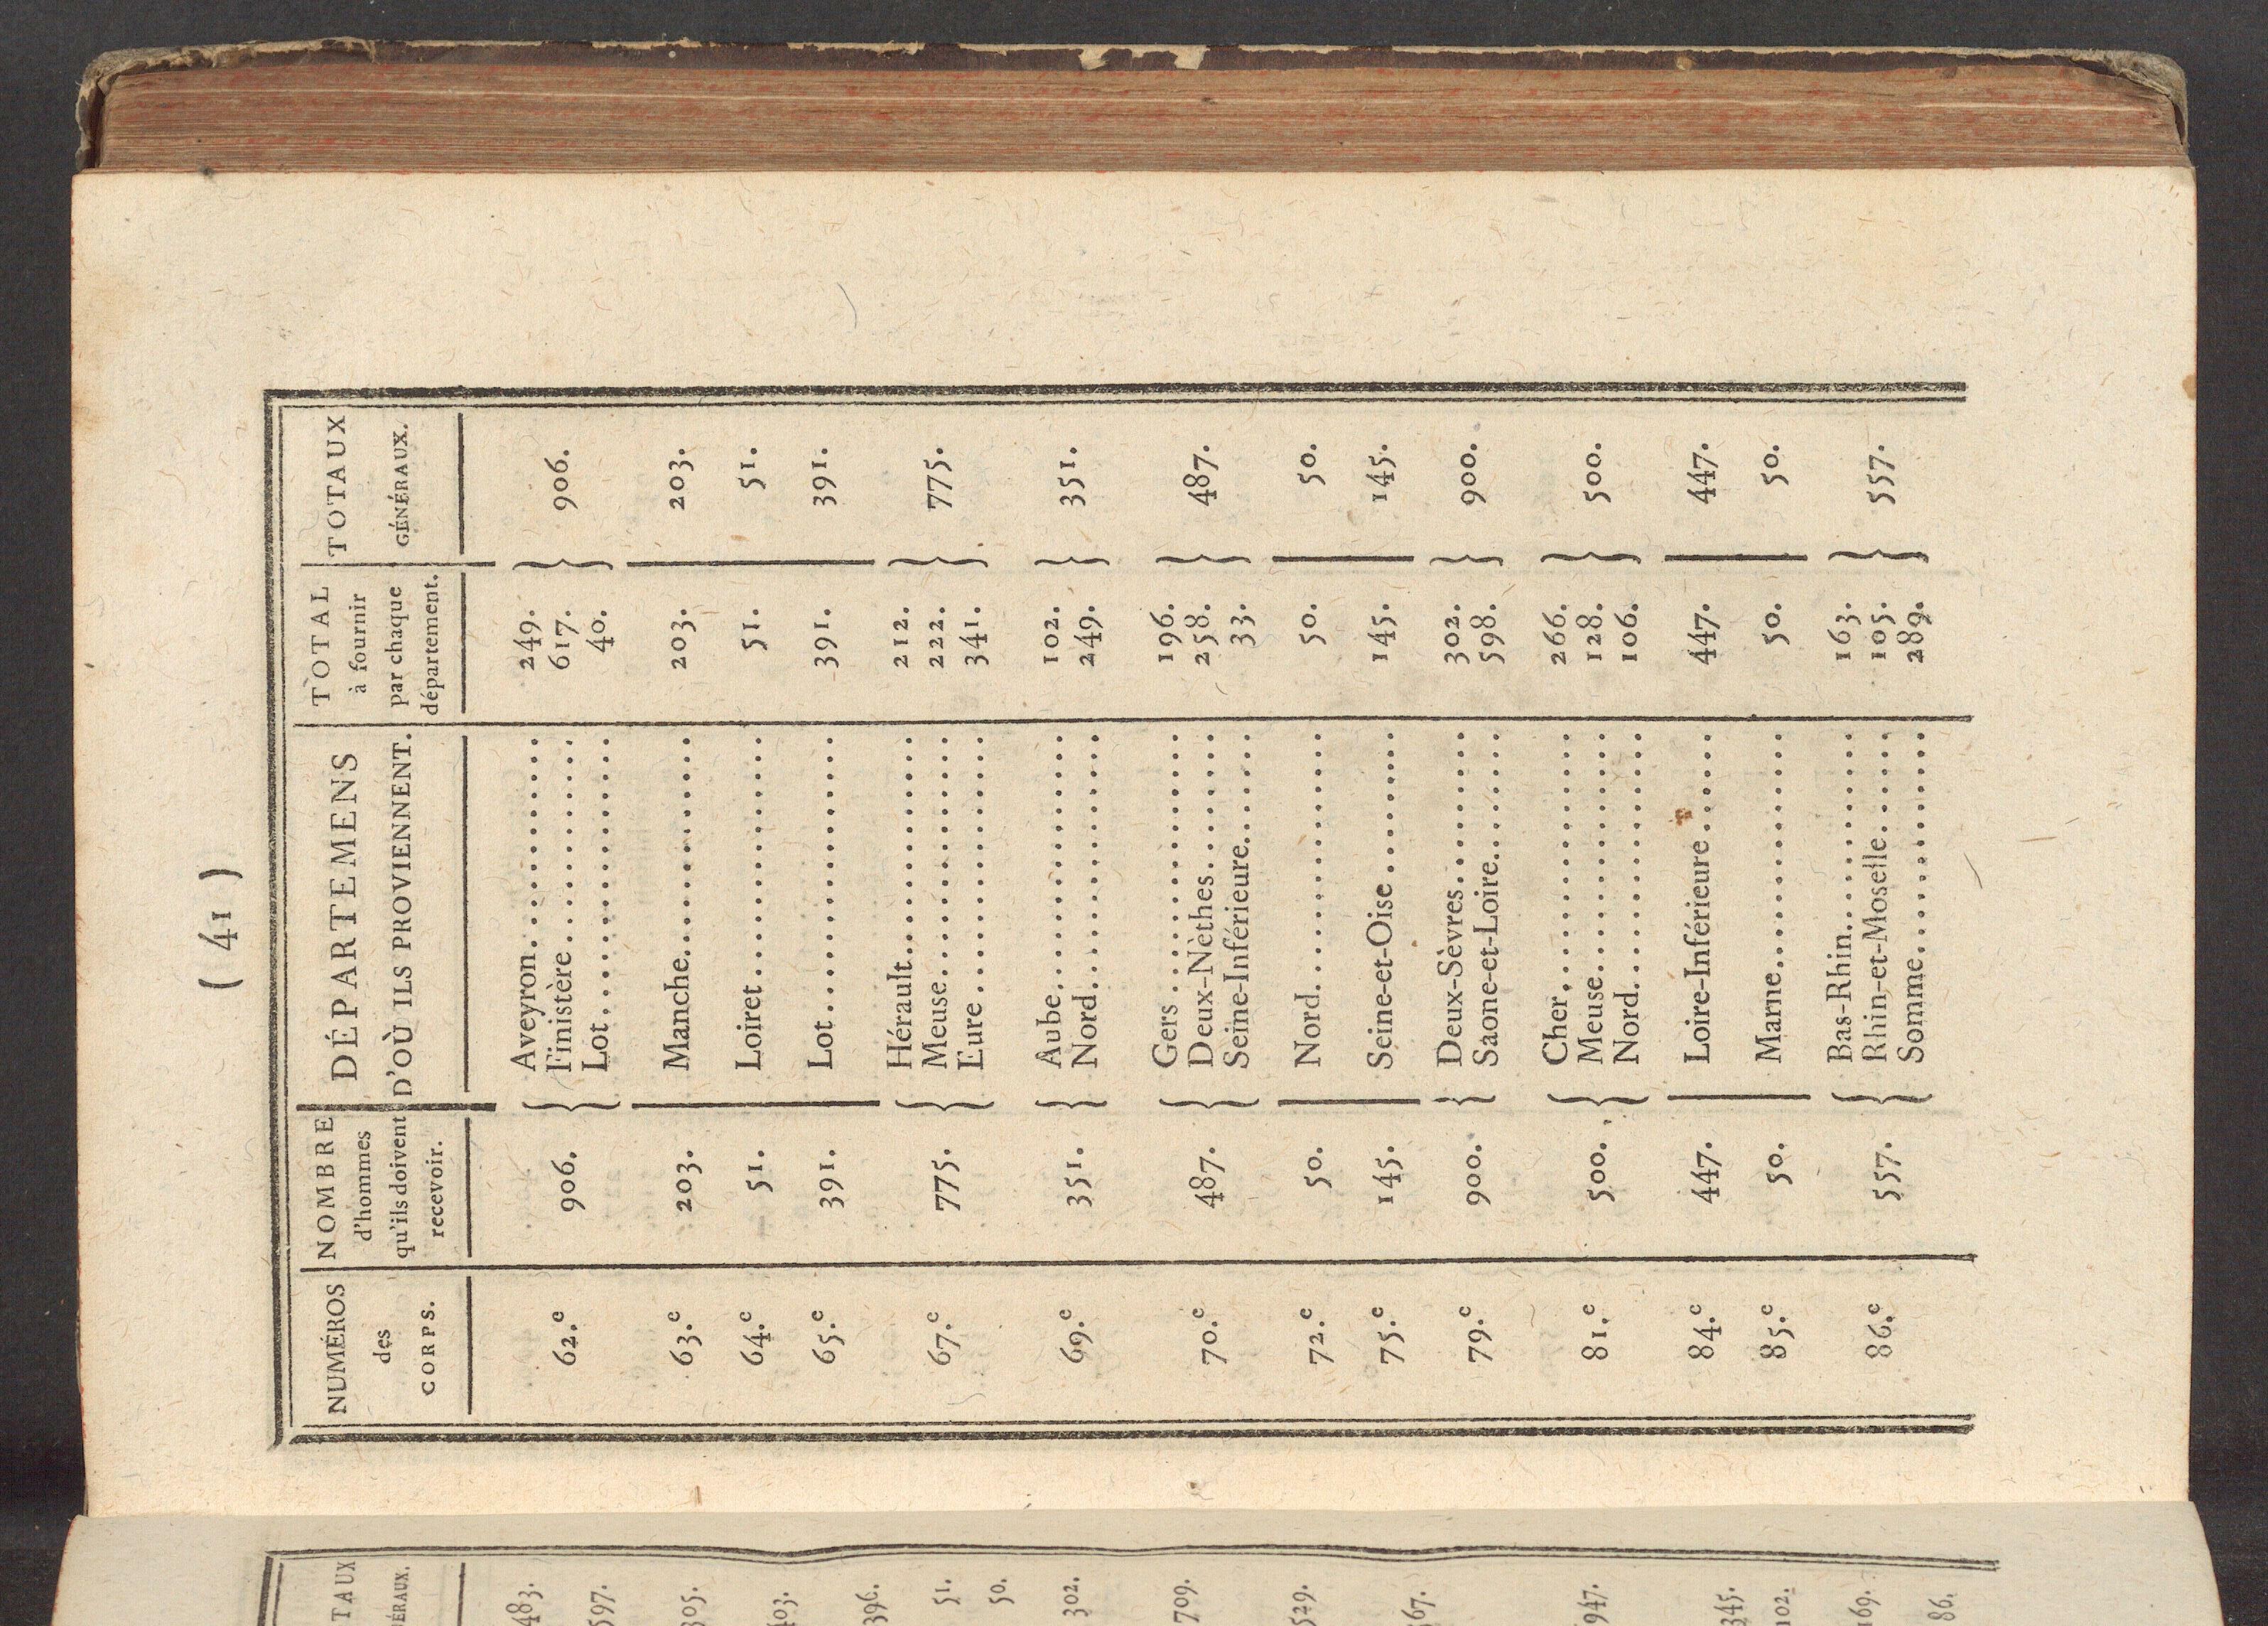 ( 41 )
NUMÉROS des CORPS. | NOMBRE d'hommes qu'ils doivent recevoir. | DÉPARTEMENS D'OÙ ILS PROVIENNENT. | TOTAL à fournir par chaque département. | TOTAUX GÉNÉRAUX.
62.e 906. { Aveyron............ 249. } 906.
Finistère............ 617.
Lot............ 40.
63.e 203. Manche............ 203. 203.
64.e 51. Loiret............ 51. 51.
65.e 391. Lot............ 391. 391.
67.e 775. { Hérault............ 212. } 775.
Meuse............ 222.
Eure............ 341.
69.e 351. { Aube............ 102. } 351.
Nord............ 249.
70.e 487. { Gers............ 196. } 487.
Deux-Nèthes........ 258.
Seine-Inférieure...... 33.
72.e 50. Nord............ 50. 50.
75.e 145. Seine-et-Oise........ 145. 145.
79.e 900. { Deux-Sèvres........ 302. } 900.
Saone-et-Loire....... 598.
81.e 500. { Cher............ 266. } 500.
Meuse............ 128.
Nord............ 106.
84.e 447. Loire-Inférieure...... 447. 447.
85.e 50. Marne............ 50. 50.
86.e 557. { Bas-Rhin.......... 163. } 557.
Rhin-et-Moselle...... 105.
Somme............ 289.
TAUX
ÉRAUX.
483.
597.
305.
403.
396.
51.
50.
302.
709.
529.
947.
345.
102.
169.
86.